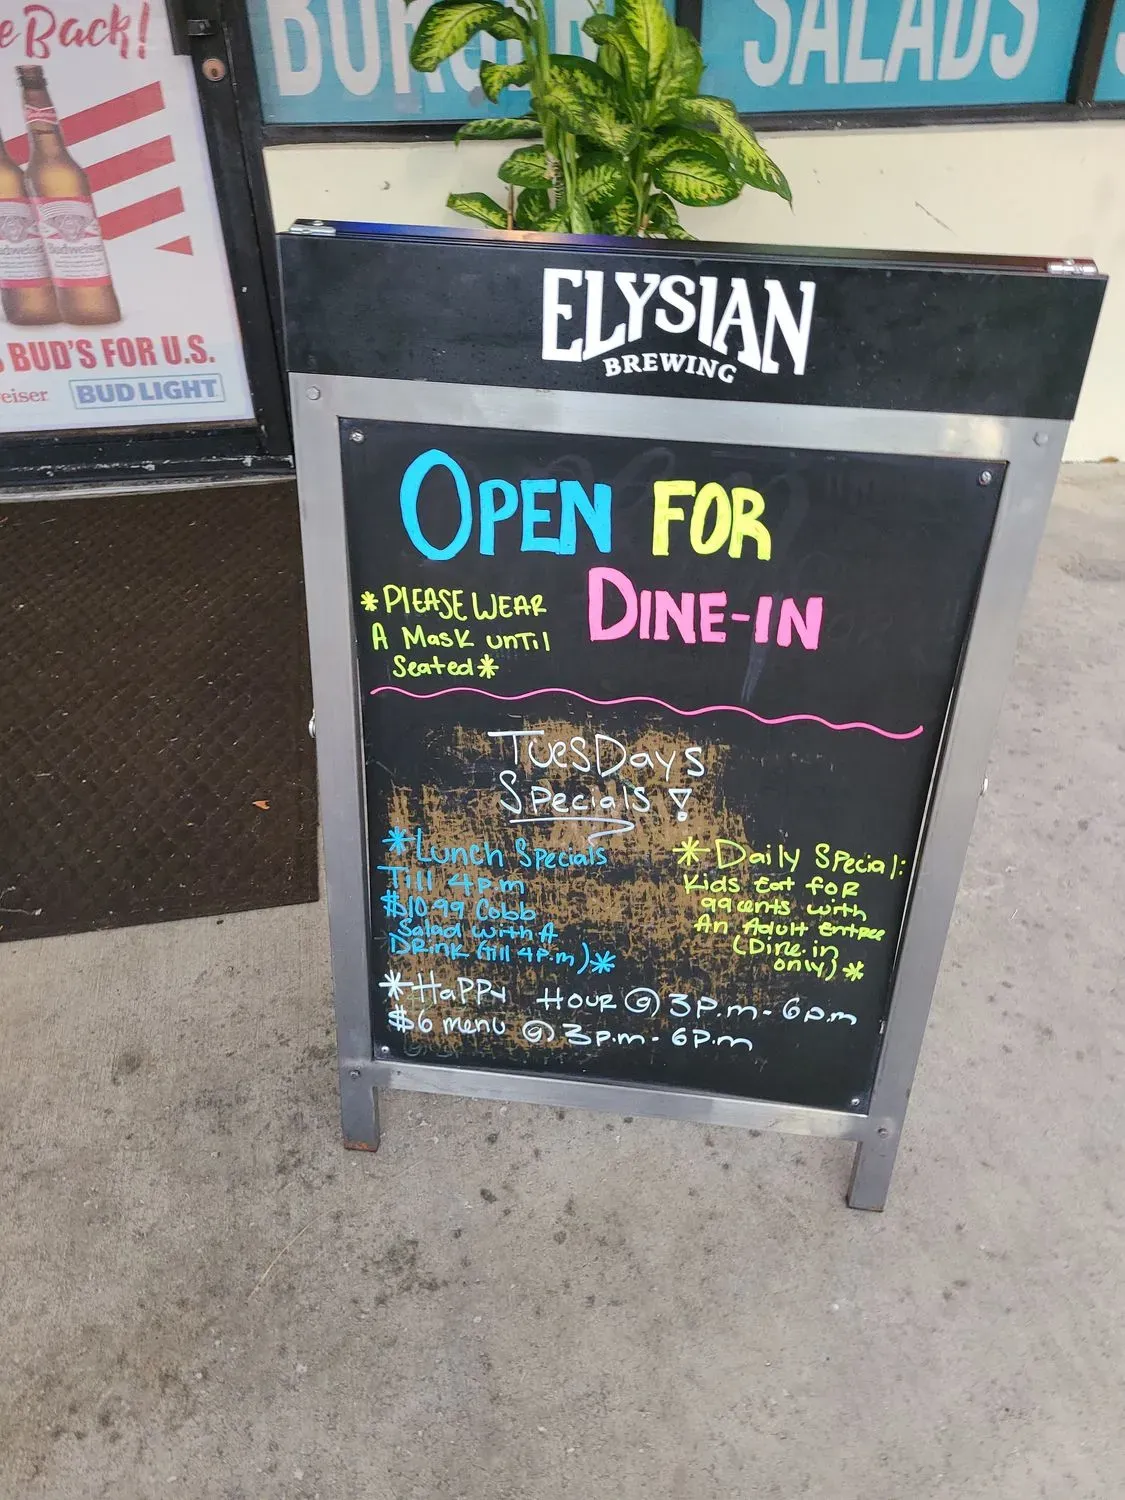 e Back!
BUD'S FOR U.S.
eiser BUD LIGHT
Budweiser
BURGERS
SALADS
ELYSIAN
BREWING
OPEN FOR
DINE-IN
*PLEASE WEAR
A MASK UNTIL
Seated*
TuesDays
Specials!
*Lunch Specials
Till 4p.m
$10.99 Cobb
Salad with A
DRink (till 4p.m)*
*Daily Special:
Kids Eat foR
99 cents with
An Adult Entree
(Dine-in
only)*
*HaPPy HOUR @ 3p.m- 6p.m
$6 menu @ 3p.m- 6P.m